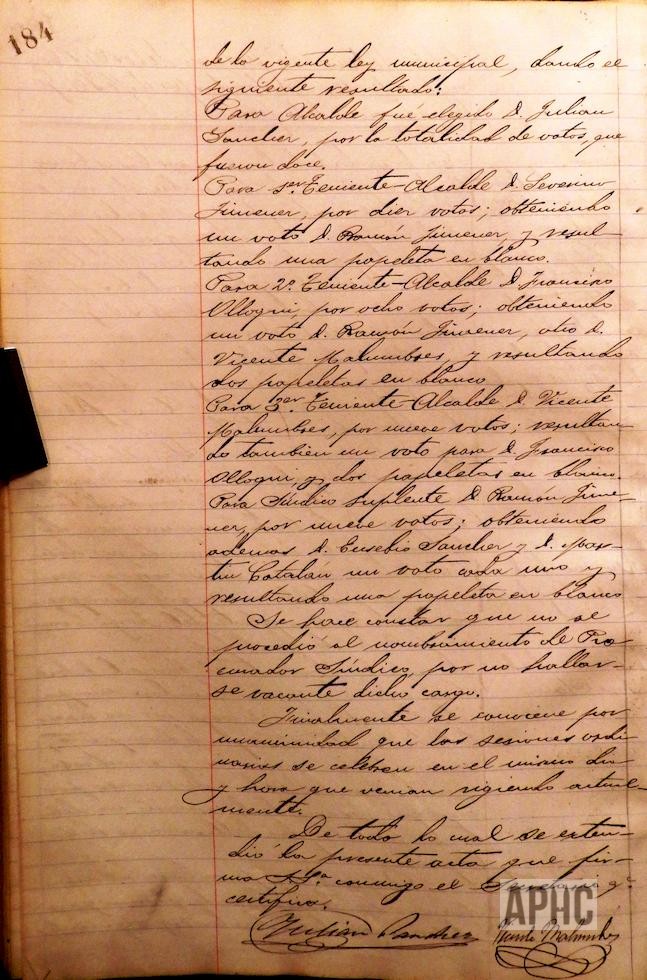 184
de la vigente ley municipal, dando el
siguiente resultado:
Para Alcalde fué elegido D. Julian
Sanchez, por la totalidad de votos, que
fueron doce.
Para 1er. Teniente-Alcalde D. Severino
Jimenez, por diez votos; obteniendo
un voto D. Ramón Jimenez, y resul-
tando una papeleta en blanco.
Para 2º. Teniente-Alcalde D. Francisco
Olloqui, por ocho votos; obteniendo
un voto D. Ramón Jimenez, otro D.
Vicente Malumbres, y resultando
dos papeletas en blanco
Para 3er. Teniente-Alcalde D. Vicente
Malumbres, por nueve votos; resultan
do también un voto para D. Francisco
Olloqui, y dos papeletas en blanco.
Para Síndico Suplente D. Ramón Jime-
nez, por nueve votos; obteniendo
ademas D. Eusebio Sanchez y D. Mar-
tin Catalán un voto cada uno y
resultando una papeleta en blanco
Se hace constar que no se
procedió al nombramiento de Pro
curador Síndico, por no hallar-
se vacante dicho cargo.
Finalmente se conviene por
unanimidad que las sesiones ordi
narias se celebren en el mismo dia
y hora que venian rigiendo actual-
mente.
De todo lo cual se exten-
dió la presente acta que fir-
ma S. Sª. conmigo el Secretario qe.
certifico.
Julian Sanchez Vicente Malumbres
APHC